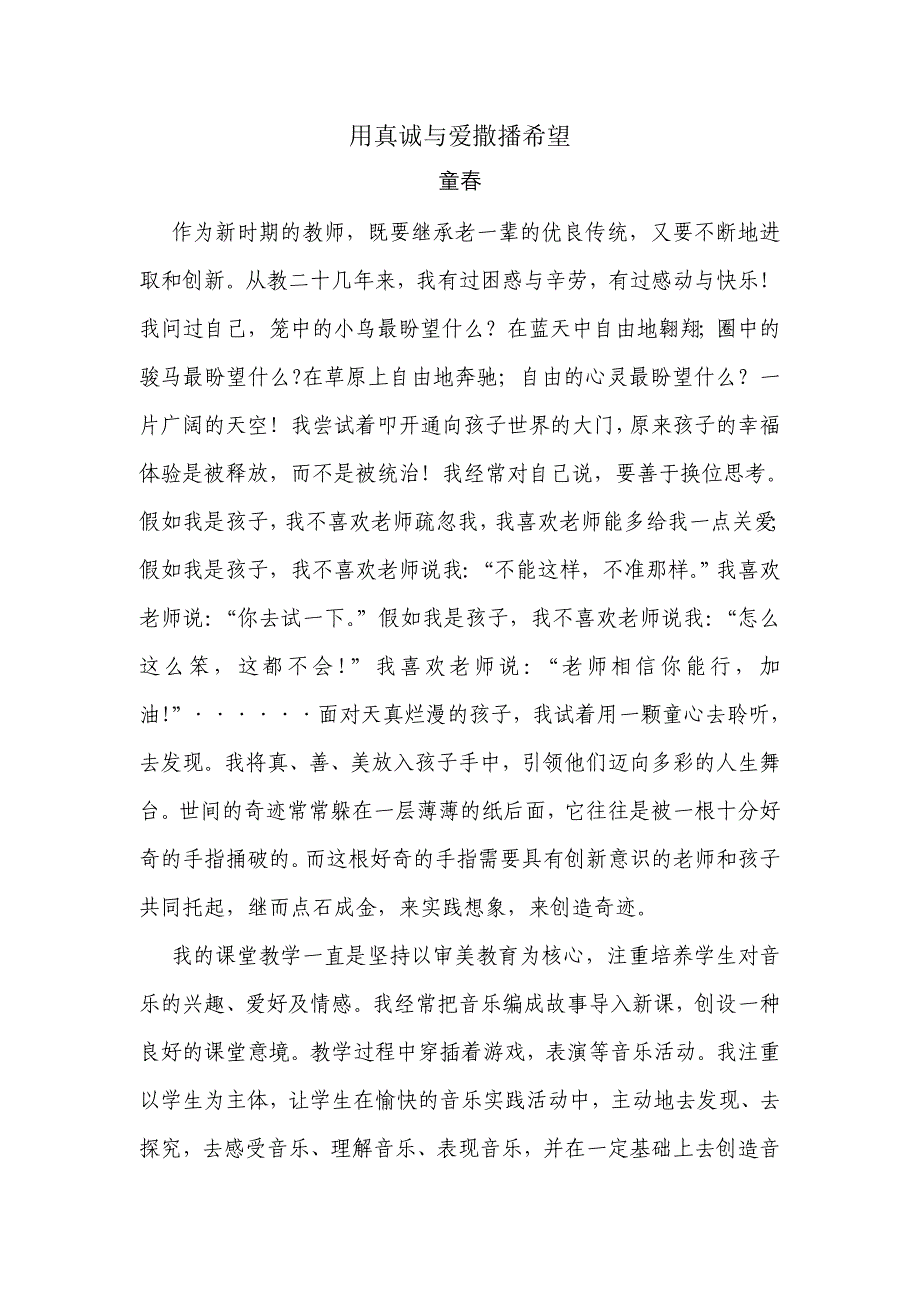 用真诚与爱撒播希望
童春
作为新时期的教师，既要继承老一辈的优良传统，又要不断地进
取和创新。从教二十几年来，我有过困惑与辛劳，有过感动与快乐！
我问过自己，笼中的小鸟最盼望什么？在蓝天中自由地翱翔；圈中的
骏马最盼望什么?在草原上自由地奔驰；自由的心灵最盼望什么？一
片广阔的天空！我尝试着叩开通向孩子世界的大门，原来孩子的幸福
体验是被释放，而不是被统治！我经常对自己说，要善于换位思考。
假如我是孩子，我不喜欢老师疏忽我，我喜欢老师能多给我一点关爱；
假如我是孩子，我不喜欢老师说我：“不能这样，不准那样。”我喜欢
老师说：“你去试一下。”假如我是孩子，我不喜欢老师说我：“怎么
这么笨，这都不会！”我喜欢老师说：“老师相信你能行，加
油！”······面对天真烂漫的孩子，我试着用一颗童心去聆听，
去发现。我将真、善、美放入孩子手中，引领他们迈向多彩的人生舞
台。世间的奇迹常常躲在一层薄薄的纸后面，它往往是被一根十分好
奇的手指捅破的。而这根好奇的手指需要具有创新意识的老师和孩子
共同托起，继而点石成金，来实践想象，来创造奇迹。
我的课堂教学一直是坚持以审美教育为核心，注重培养学生对音
乐的兴趣、爱好及情感。我经常把音乐编成故事导入新课，创设一种
良好的课堂意境。教学过程中穿插着游戏，表演等音乐活动。我注重
以学生为主体，让学生在愉快的音乐实践活动中，主动地去发现、去
探究，去感受音乐、理解音乐、表现音乐，并在一定基础上去创造音